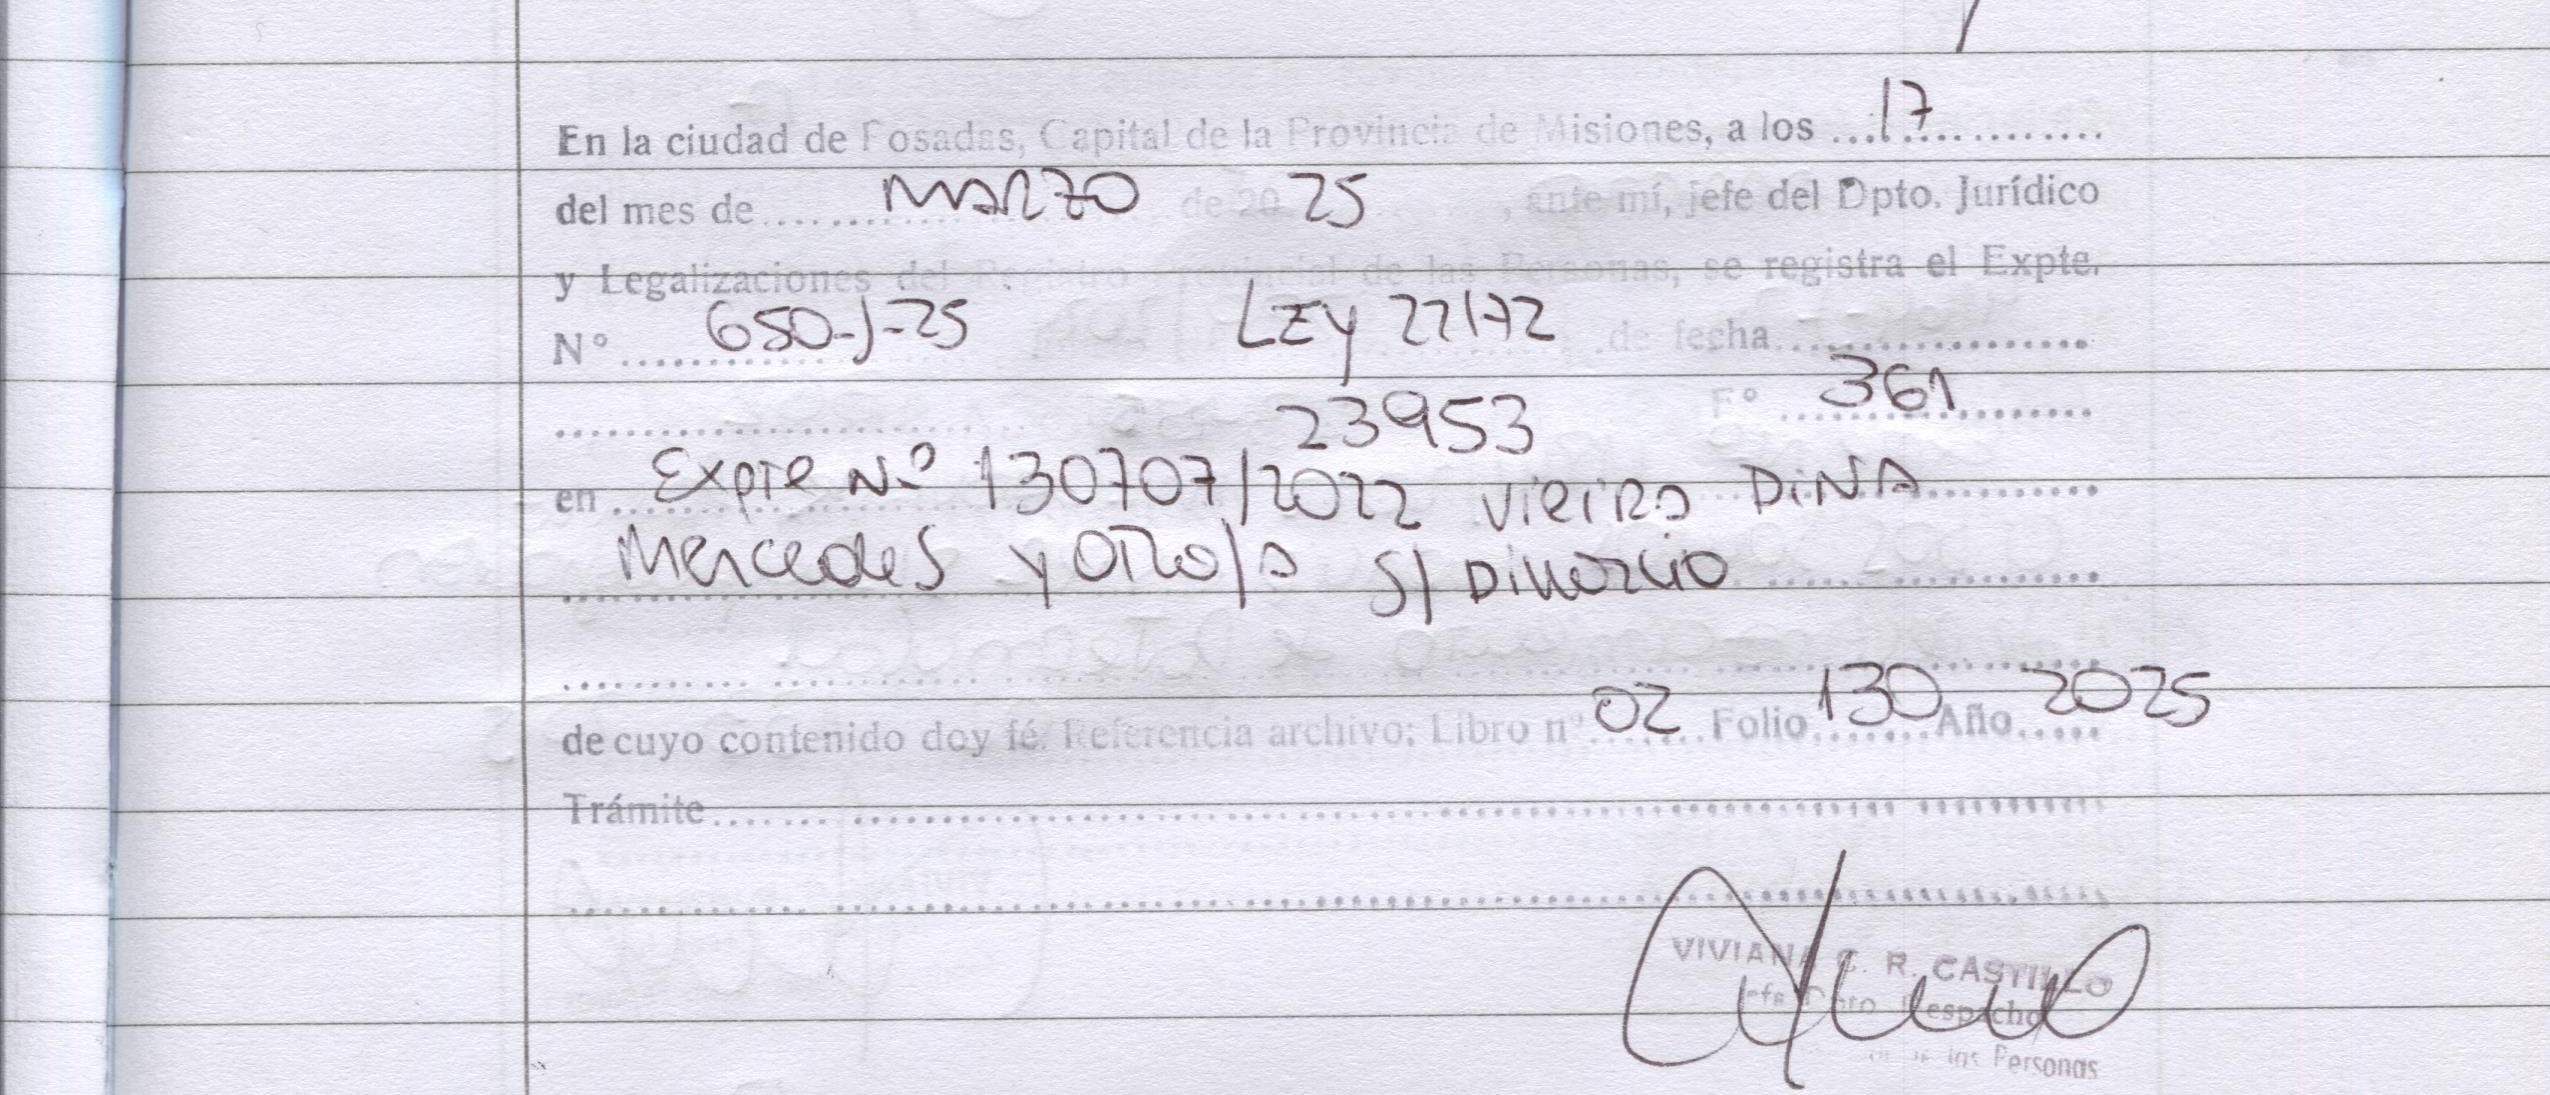 En la ciudad de Posadas, Capital de la Provincia de Misiones, a los ...17............
del mes de ........... MARZO de 20 25 , ante mí, jefe del Dpto. Jurídico
y Legalizaciones del Registro Provincial de las Personas, se registra el Expte.
N° ........ 650-J-25 LEY 22172 de fecha..................
........................ 23953 F° ... 361 ............
en ... Expte Nº 130707/2022 VIEIRA DINA ............
Mercedes y OTRO/A S/ DIVORCIO ............
............................................................
de cuyo contenido doy fé. Referencia archivo; Libro nº 02 Folio 130 Año 2025
Trámite............................................................
............................................................
VIVIANA C. R. CASTILLO
Jefe Dpto Despacho
de las Personas